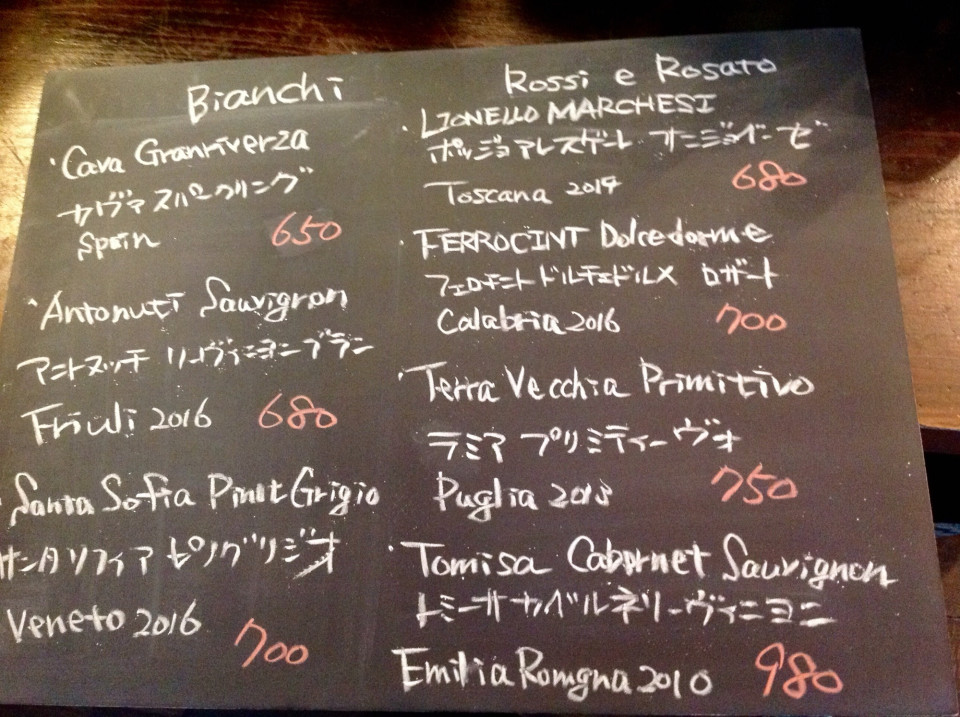 Bianchi
・Cava Granriverza
カヴァ スパークリング
Spain 650
・Antonuti Sauvignon
アントヌッチ ソーヴィニヨンブラン
Friuli 2016 680
・Santa Sofia Pinot Grigio
サンタソフィア ピノグリジオ
Veneto 2016
700
Rossi e Rosato
・LIONELLO MARCHESI
ポッジョアレズゲート サンジョベーゼ
Toscana 2014 680
・FERROCINT Dolcedorme
フェロチント ドルチェドルメ ロザート
Calabria 2016 700
・Terra Vecchia Primitivo
ラミア プリミティーヴォ
Puglia 2013 750
・Tomisa Cabernet Sauvignon
トミーサ カベルネソーヴィニヨン
Emilia Romgna 2010 980